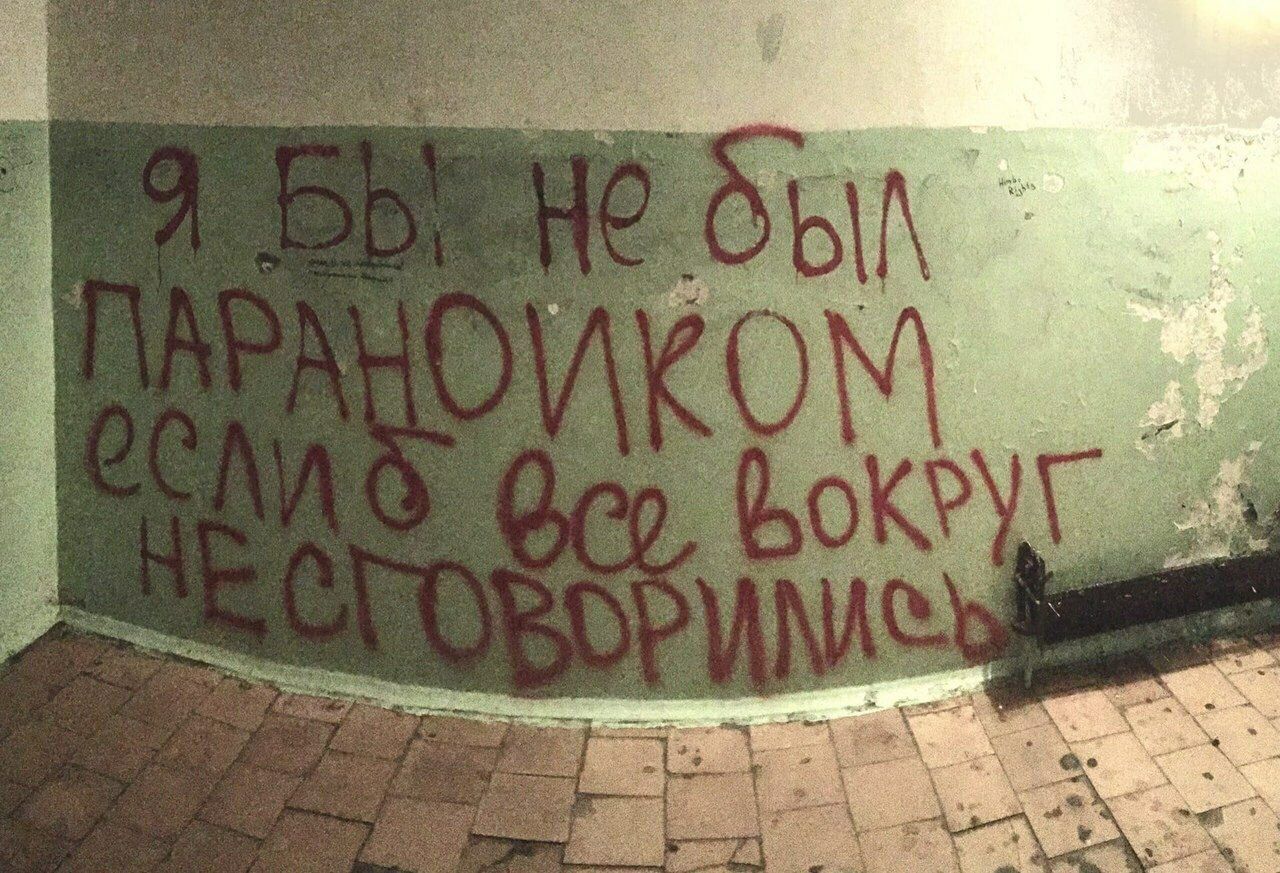 я Бы не был
ПАРАНОИКОМ
если б все вокруг
НЕ СГОВОРИЛИСЬ